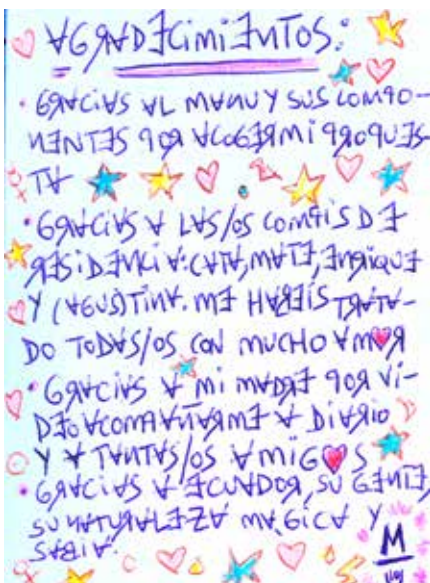 AGRADECiMiENTOS:
• GRACiAS AL MANU Y SUS COMPO-
NENTES POR ACOGER Mi PROPUES-
TA
• GRACiAS A LAS/OS COMPiS DE
RESiDENCiA: CATA, MATE, ENRiQUE
Y (AGUS)TiNA. ME HABEiS TRATA-
DO TODAS/OS CON MUCHO AMOR
• GRACiAS A Mi MADRE POR Vi-
DEOACOMPAÑARME A DiARiO
Y A TANTAS/OS AMiGOS
• GRACiAS A ECUADOR, SU GENTE,
SU NATURALEZA MÁGiCA Y
SABiA.
M